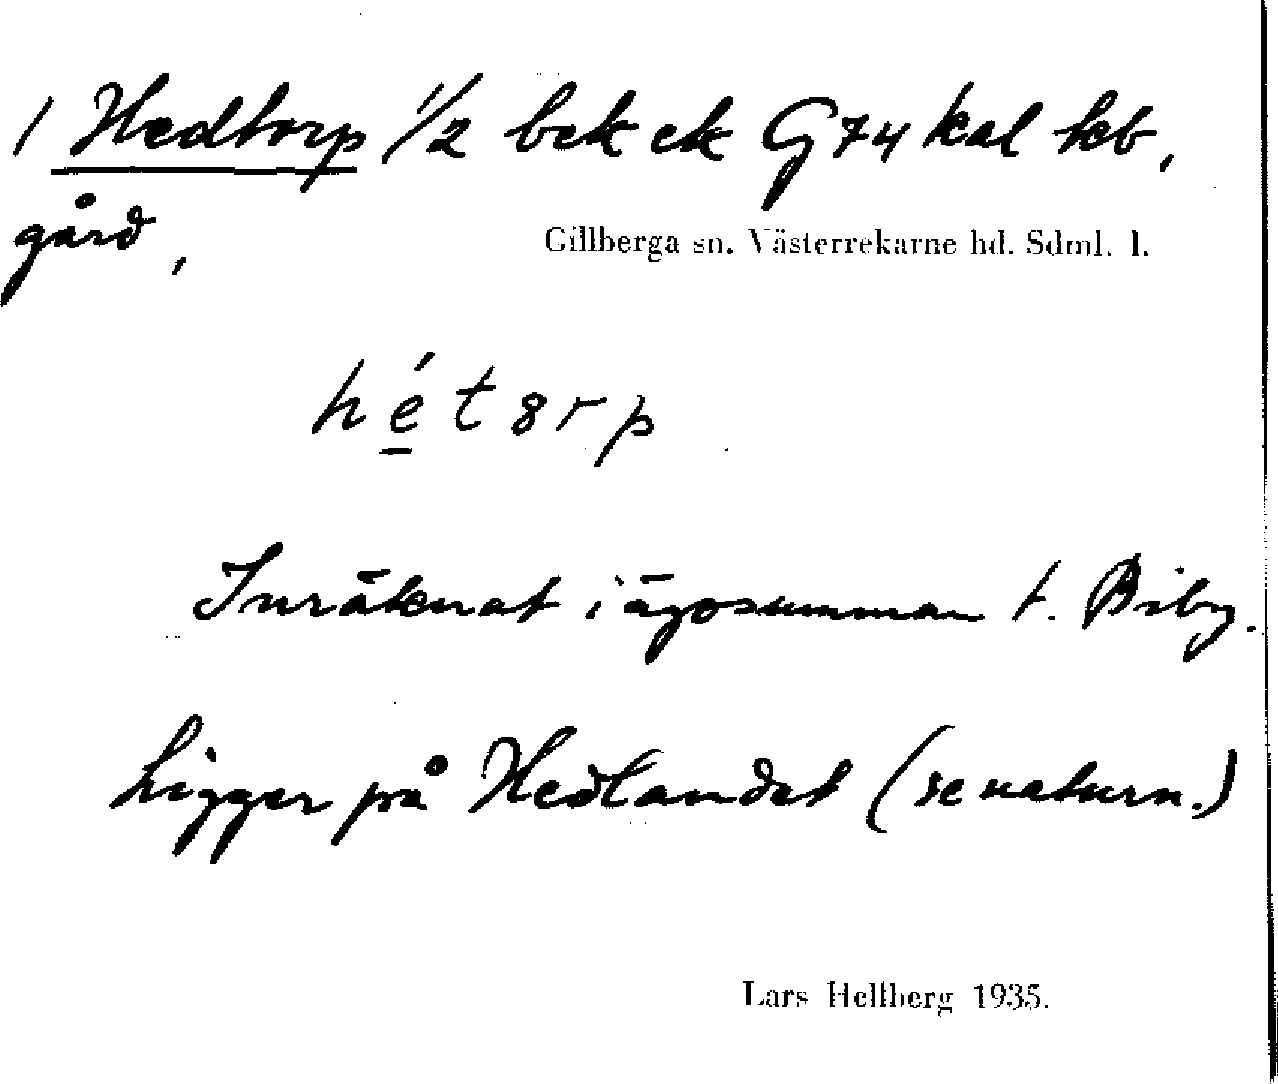 / Hedtorp 1/2 bek ek G74 kal kb,
gård,
Gillberga sn. Västerrekarne hd. Sdml. l.
hét8rp
Inräknat i ägosumman t. Biby.
Ligger på Hedlandet (se naturn.)
Lars Hellberg 1935.